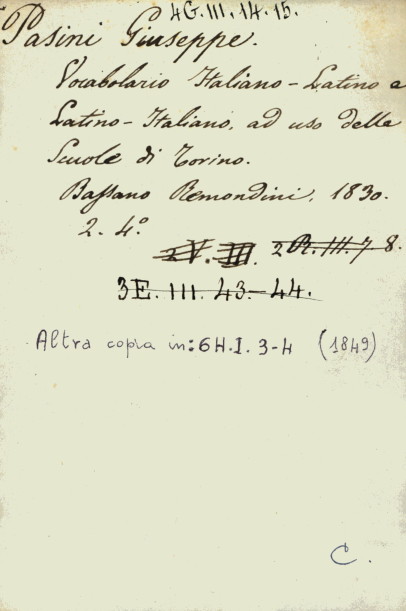 4G.III.14.15.
Pasini Giuseppe.
Vocabolario Italiano-Latino e
Latino-Italiano, ad uso delle
Scuole di Torino.
Bassano Remondini, 1830.
2. 4.º
2 R.III.7 8.
3E.III.43-44.
Altra copia in: 6H.I.3-4 (1849)
C.